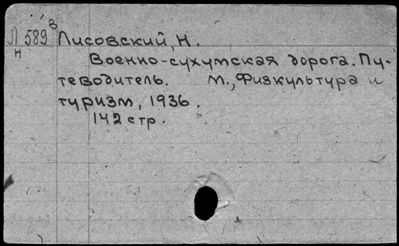 Л 589 3
н
Лисовский, Н.
Военно-сухумская дорога. Пу-
теводитель. М., Физкультура и
туризм, 1936.
142 стр.